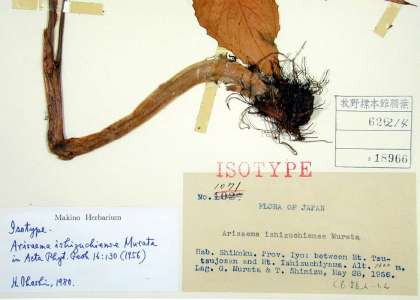 牧野標本館所蔵
18966
ISOTYPE
1071
No.
FLORA OF JAPAN
Arisaema ishizuchiense Murata
Hab. Shikoku. Prov. Iyo: between Mt. Tsu-
tsujosen and Mt. Ishizuchiyama. Alt.
Leg. G. Murata & T. Shimizu, May 28, 1956.
Makino Herbarium
Isotype.
Arisaema ishizuchiense Murata
in Acta Phyt. Geob. 16:130 (1956)
H. Ohashi, 1980.